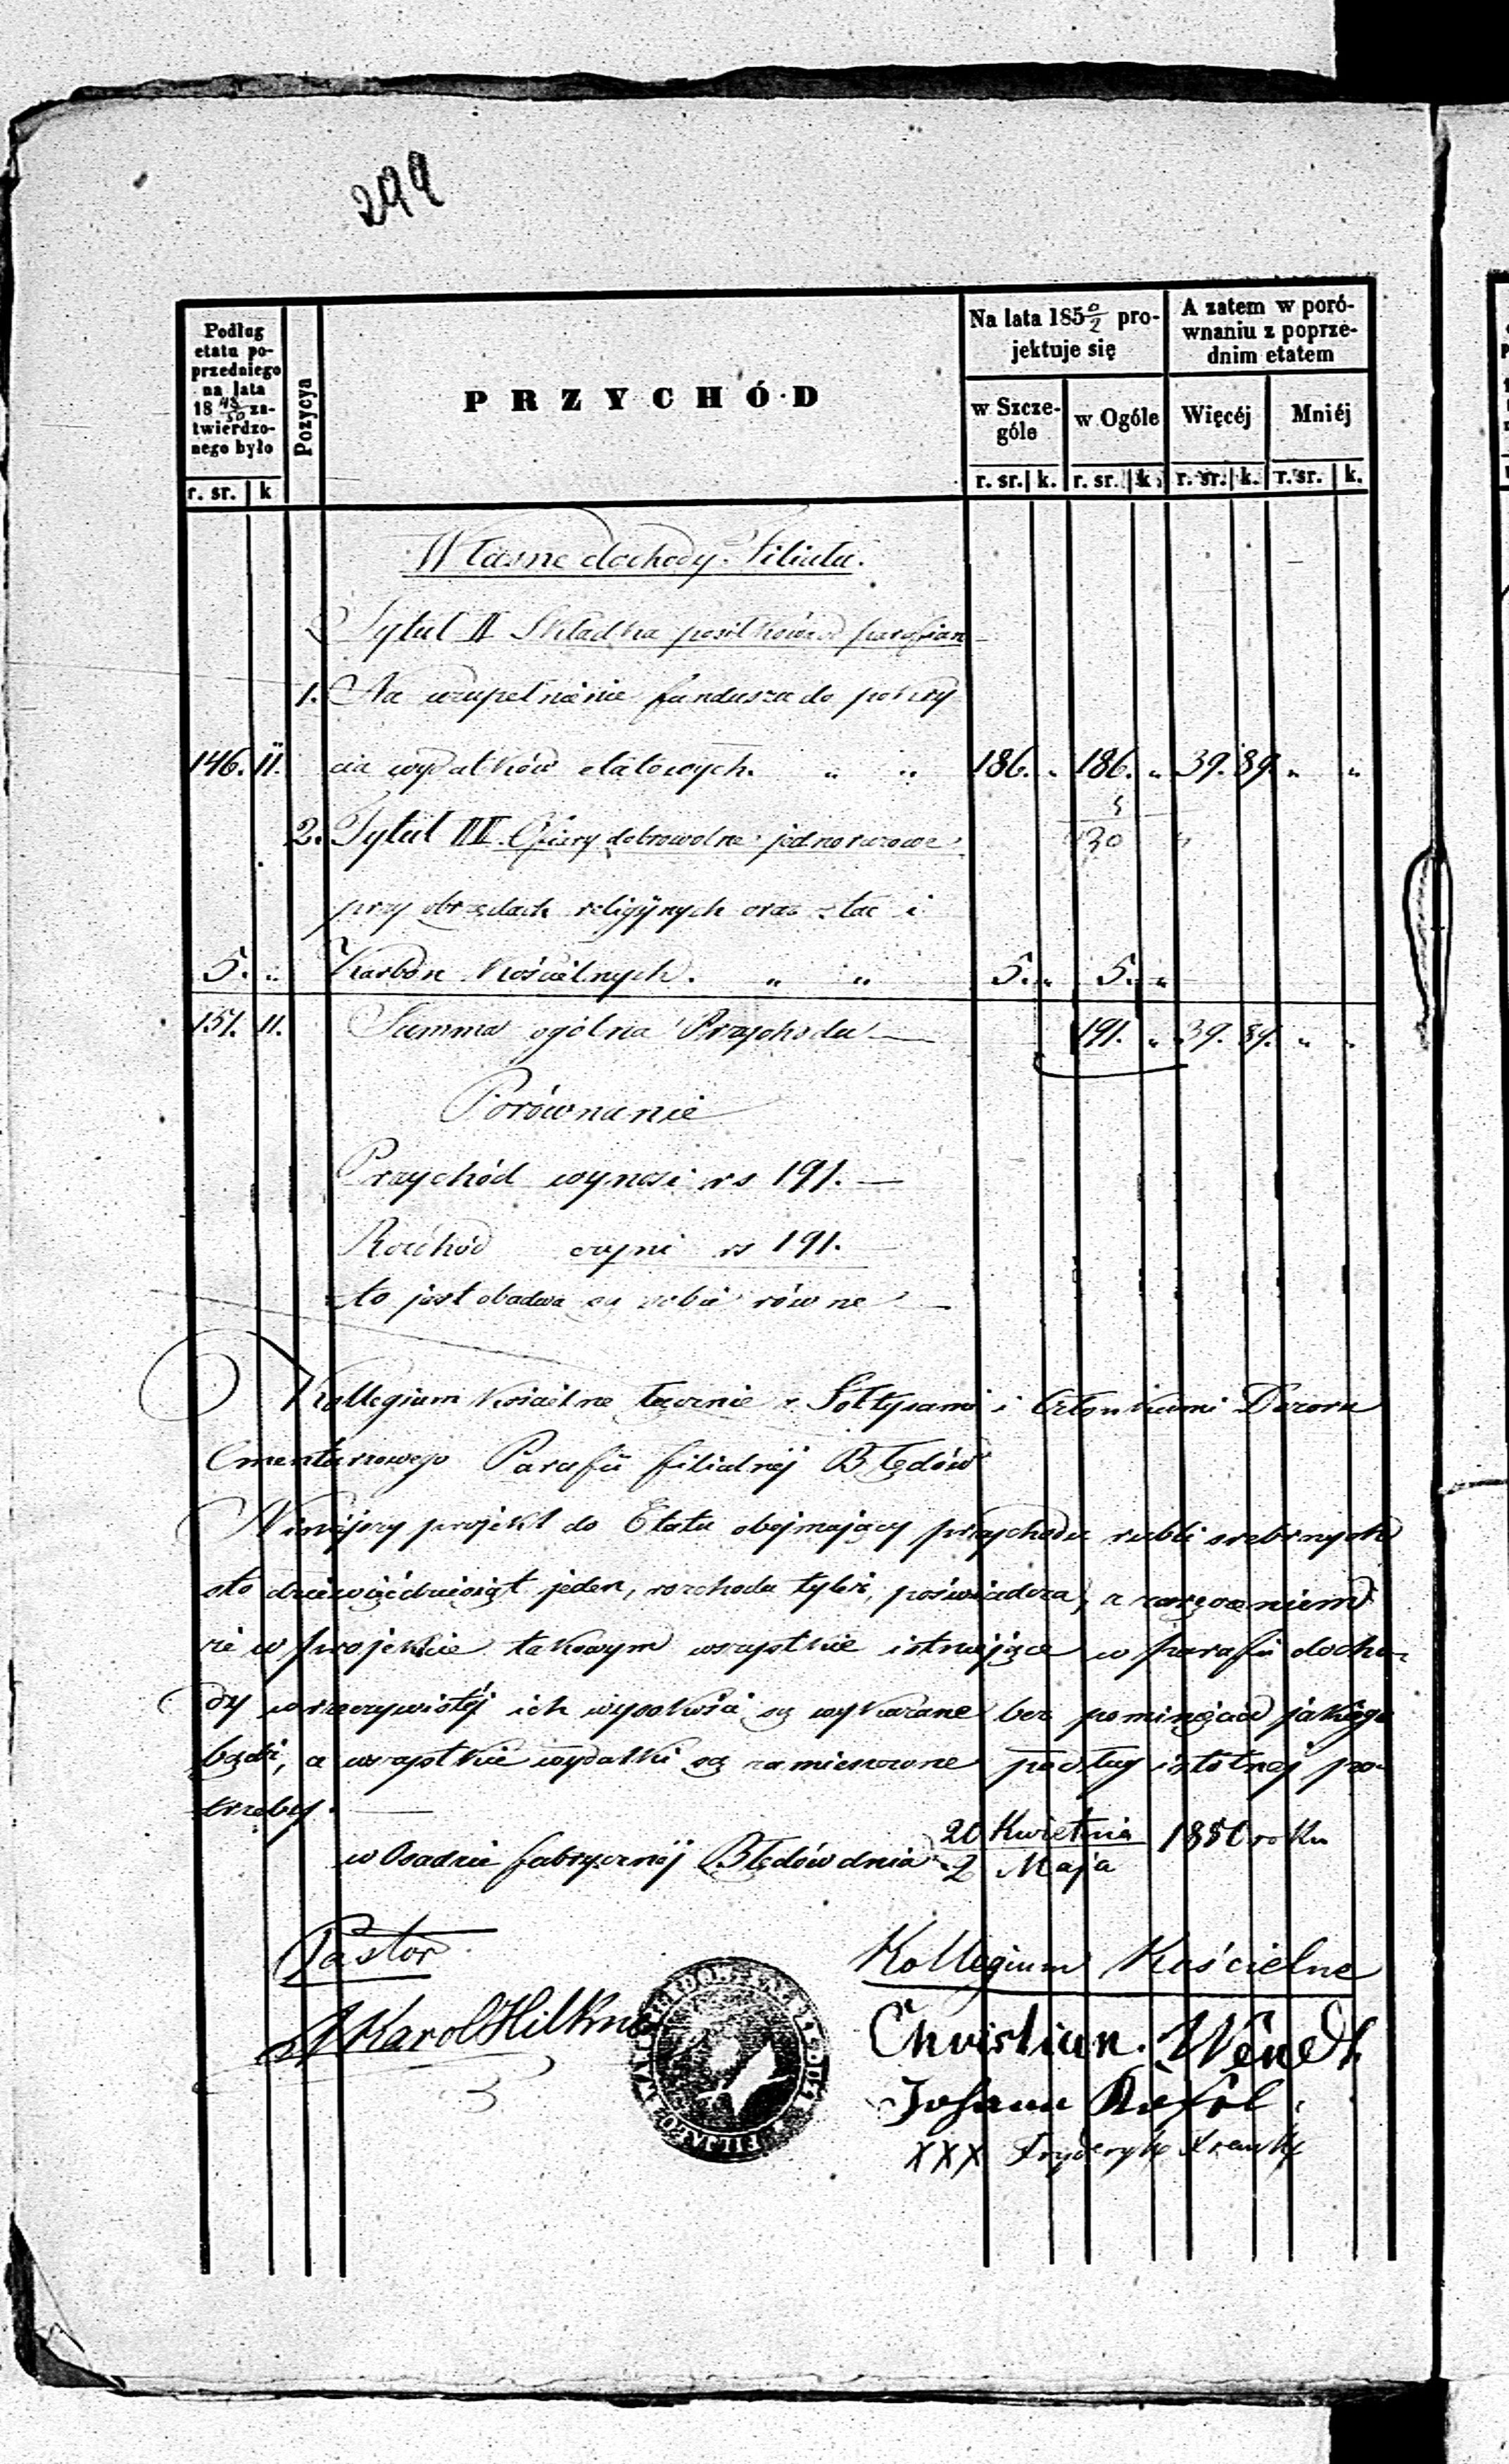 299
Podług etatu poprzedniego na lata 18 48/50 zatwierdzonego było
r. sr. | k
Pozycya
PRZYCHÓD
Na lata 185 0/2 projektuje się
w Szczególe
w Ogóle
r. sr. | k. r. sr. | k.
A zatem w porównaniu z poprzednim etatem
Więcéj
Mniéj
r. sr. | k. r. sr. | k.
Własne dochody Filiału.
Tytuł II Składka posiłkowa parafian
1. Na uzupełnienie funduszu do pokry
146. 11. cia wydatków etatowych. " " 186. " 186. " 39. 89. " "
5
30
2. Tytuł III. Ofiary dobrowolne jednorazowe
przy obrzędach religijnych oraz tac i
5. " Karbon Kościelnych. " " 5. " 5. "
151. 11. Summa ogólna Przychodu 191. " 39. 89. " "
Porównanie
Przychód wynosi rs 191. —
Rozchód czyni rs 191.
to jest obadwa są sobie równe —
Kollegium Kościelne łącznie z Sołtysami i Członkami Dozoru
Cmentarzowego Parafii filialnéj Błędów
Niniejszy projekt do Etatu obejmujący przychodu rubli srebrnych
sto dziewięćdziesiąt jeden, rozchodu tyleż, poświadcza, z zaręczeniem
że w projekcie takowym wszystkie istniejące w parafii docho-
dy w rzeczywistéj ich wysokości są wykazane bez pominięcia jakiego
bądź, a wszystkie wydatki są zamieszczone podług istotnej po-
trzeby. —
w Osadzie fabrycznéj Błędów dnia 20 Kwietnia / 2 Maja 1850 roku
Pastor
Karol Hilkner
Kollegium Kościelne
Christian Wendt
Johann
XXX Fryderyk